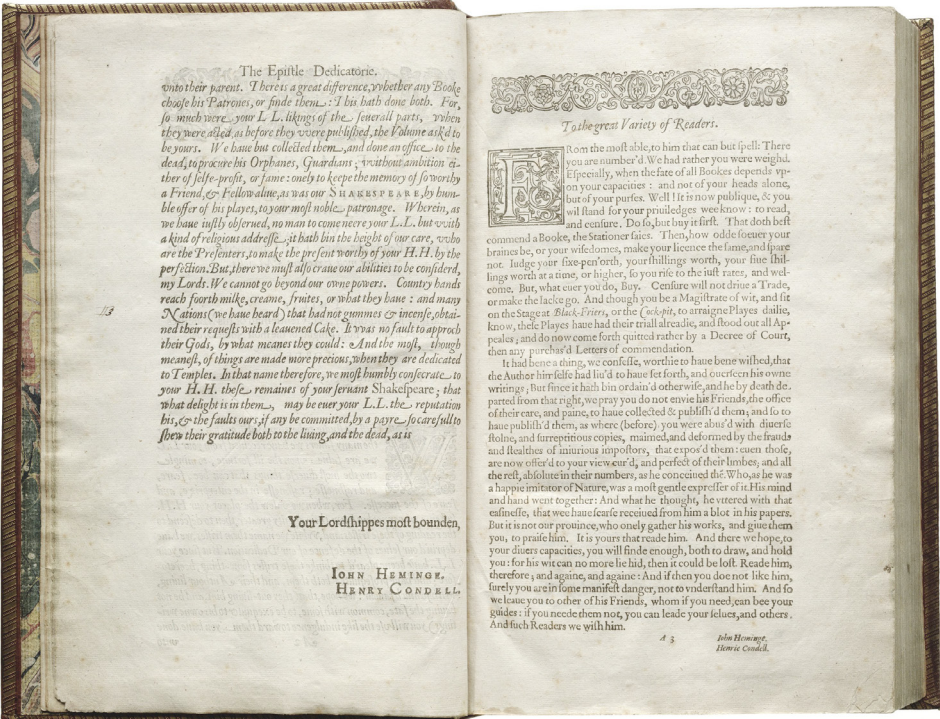 The Epistle Dedicatorie.
vnto their parent. There is a great difference, vvhether any Booke
choose his Patrones, or finde them: This hath done both. For,
so much were your L L. likings of the seuerall parts, vvhen
they were acted, as before they vvere published, the Volume ask'd to
be yours. We haue but collected them, and done an office to the
dead, to procure his Orphanes, Guardians; vvithout ambition ei-
ther of selfe-profit, or fame: onely to keepe the memory of so worthy
a Friend, & Fellow aliue, as was our SHAKESPEARE, by hum-
ble offer of his playes, to your most noble patronage. Wherein, as
we haue iustly obserued, no man to come neere your L.L. but vvith
a kind of religious addresse; it hath bin the height of our care, vvho
are the Presenters, to make the present worthy of your H.H. by the
perfection. But, there we must also craue our abilities to be considerd,
my Lords. We cannot go beyond our owne powers. Country hands
reach foorth milke, creame, fruites, or what they haue: and many
Nations (we haue heard) that had not gummes & incense, obtai-
ned their requests with a leauened Cake. It vvas no fault to approch
their Gods, by what meanes they could: And the most, though
meanest, of things are made more precious, when they are dedicated
to Temples. In that name therefore, we most humbly consecrate to
your H. H. these remaines of your seruant Shakespeare; that
what delight is in them, may be euer your L.L. the reputation
his, & the faults ours, if any be committed, by a payre so carefull to
shew their gratitude both to the liuing, and the dead, as is
Your Lordshippes most bounden,
IOHN HEMINGE.
HENRY CONDELL.
To the great Variety of Readers.
FRom the most able, to him that can but spell: There
you are number'd. We had rather you were weighd.
Especially, when the fate of all Bookes depends vp-
on your capacities : and not of your heads alone,
but of your purses. Well! It is now publique, & you
wil stand for your priuiledges wee know : to read,
and censure. Do so, but buy it first. That doth best
commend a Booke, the Stationer saies. Then, how odde soeuer your
braines be, or your wisedomes, make your licence the same, and spare
not. Iudge your sixe-pen'orth, your shillings worth, your fiue shil-
lings worth at a time, or higher, so you rise to the iust rates, and wel-
come. But, what euer you do, Buy. Censure will not driue a Trade,
or make the Iacke go. And though you be a Magistrate of wit, and sit
on the Stage at Black-Friers, or the Cock-pit, to arraigne Playes dailie,
know, these Playes haue had their triall alreadie, and stood out all Ap-
peales; and do now come forth quitted rather by a Decree of Court,
then any purchas'd Letters of commendation.
It had bene a thing, we confesse, worthie to haue bene wished, that
the Author himselfe had liu'd to haue set forth, and ouerseen his owne
writings; But since it hath bin ordain'd otherwise, and he by death de-
parted from that right, we pray you do not envie his Friends, the office
of their care, and paine, to haue collected & publish'd them; and so to
haue publish'd them, as where (before) you were abus'd with diuerse
stolne, and surreptitious copies, maimed, and deformed by the frauds
and stealthes of iniurious impostors, that expos'd them : euen those,
are now offer'd to your view cur'd, and perfect of their limbes; and all
the rest, absolute in their numbers, as he conceiued thē. Who, as he was
a happie imitator of Nature, was a most gentle expresser of it. His mind
and hand went together: And what he thought, he vttered with that
easinesse, that wee haue scarse receiued from him a blot in his papers.
But it is not our prouince, who onely gather his works, and giue them
you, to praise him. It is yours that reade him. And there we hope, to
your diuers capacities, you will finde enough, both to draw, and hold
you : for his wit can no more lie hid, then it could be lost. Reade him,
therefore; and againe, and againe : And if then you doe not like him,
surely you are in some manifest danger, not to vnderstand him. And so
we leaue you to other of his Friends, whom if you need, can bee your
guides : if you neede them not, you can leade your selues, and others.
And such Readers we wish him.
A 3 Iohn Heminge.
Henrie Condell.